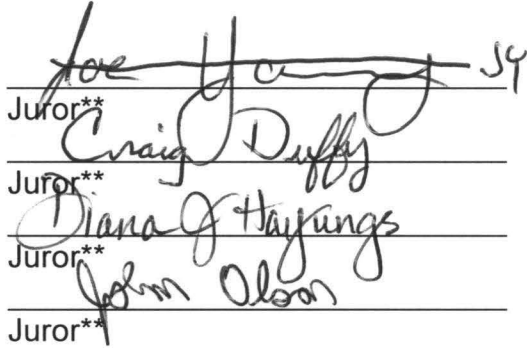 Joe Young JY
Juror**
Craig Duffy
Juror**
Diana J Hayungs
Juror**
John Olson
Juror**